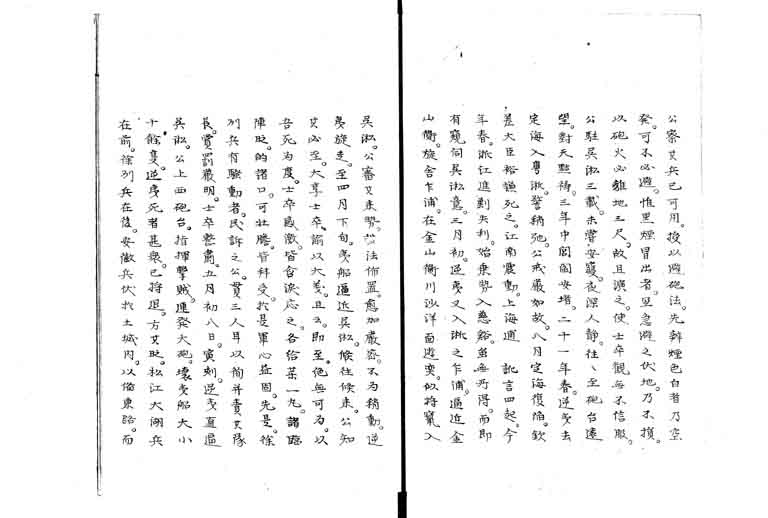 公察其兵已可用。授以避砲法。先辨煙色白者乃空
發。可不必避。惟黑煙冒出者。亟急避之伏地。乃不損。
以砲火必離地三尺。故且演之。使士卒觀。無不信服。
公駐吳淞三載。未嘗安寢。夜深人靜。往丶至砲台遠
望。對天默禱。三年中閭閻安堵。二十一年春。逆夷去
定海入粵。淞警稍弛。公戒嚴如故。八月定海復陷。欽
差大臣裕謙死之。江南震動。上海通 訛言四起。今
年春。浙江進剿失利。始乘勢入慈谿。無所得。而即
有窺伺吳淞意。三月初。逆夷又入浙之乍浦。逼近金
山衛。旋舍乍浦。在金山衛川沙洋面遊奕。似將竄入
吳淞。公審其來勢。如法佈置。愈加嚴密。不為稍動。逆
夷旋走。至四月下旬。夷船逼近吳淞。倏往倏來。公知
其必至。大享士卒。諭以大義。且云。即至。他無可為。以
吾死為度。士卒感激。皆含淚應之。各給藥一丸。謂臨
陣吃。可壯膽。皆拜受。於是軍心益固。先是。徐
州兵有騷動者。民訴之公。貫三人耳以徇。並責其隊
長。賞罰嚴明。士卒整肅。五月初八日。寅刻。逆夷直逼
吳淞。公上西砲台。指揮擊賊。連發大砲。壞夷船大小
十餘隻。逆夷死者甚衆。已將退。方其時。松江大湖兵
在前。徐州兵在後。安徽兵伏於土城內。以備東路。而